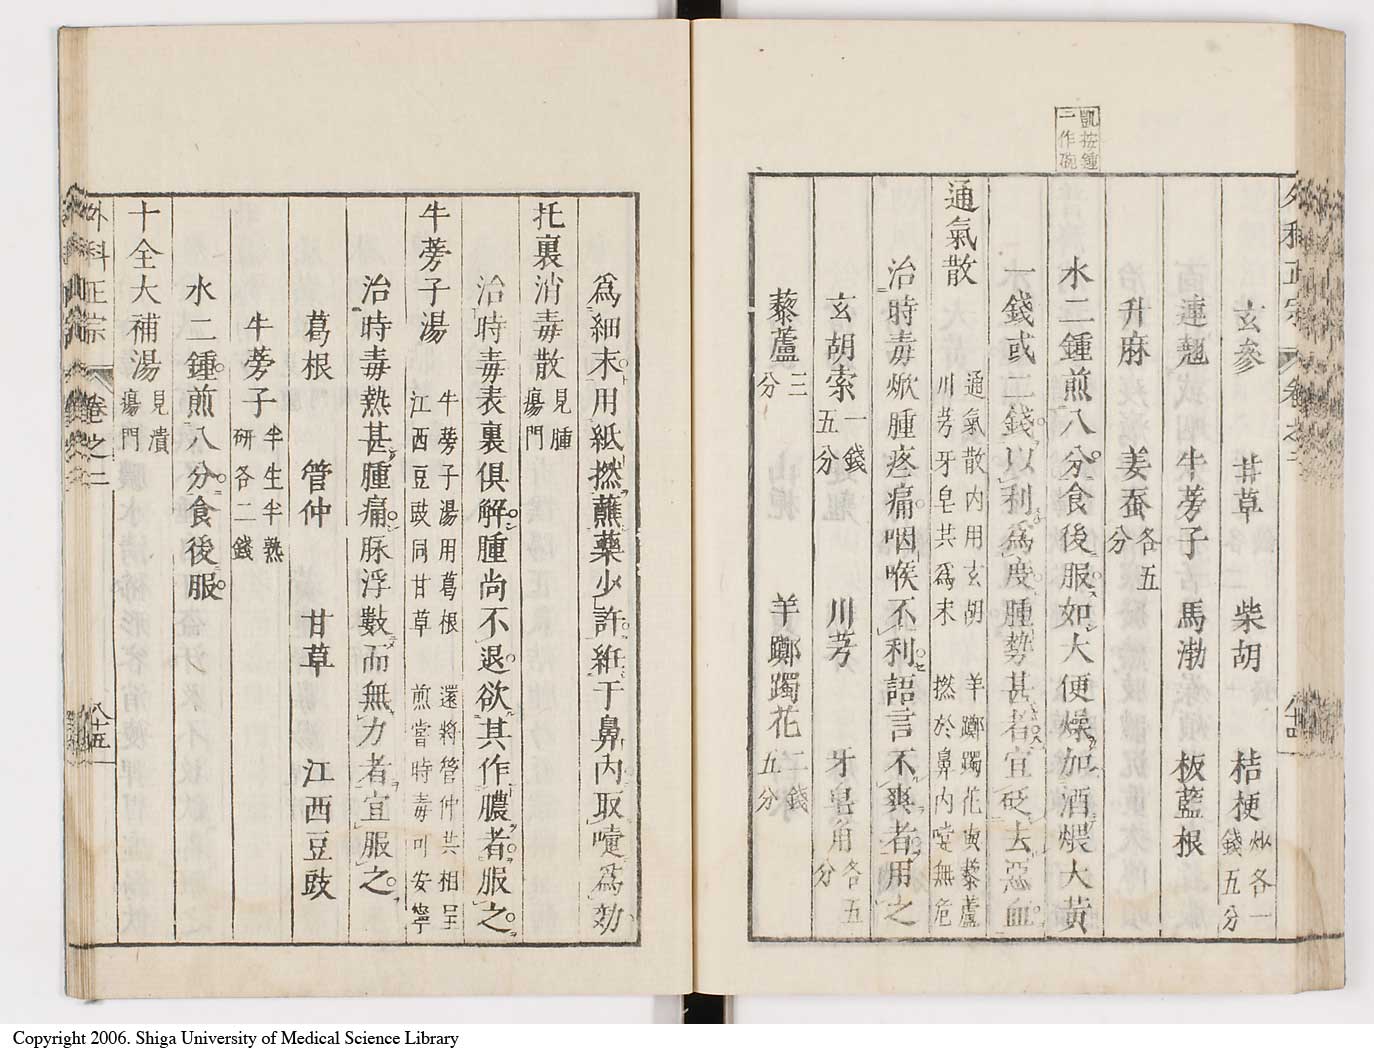 凱按鍾
一作碗
玄參　甘草　柴胡　桔梗炒各一
錢五分
連翹　牛蒡子　馬渤　板藍根
升麻　姜蚕各五
分
水二鍾煎八分食後服如大便燥加酒煨大黃
一錢或二錢以利爲度腫勢甚者宜砭去惡血
通氣散
通氣散内用玄胡　羊躑躅花與藜蘆
川芎牙皂共爲末　撚於鼻内嚏無危
治時毒焮腫疼痛咽喉不利語言不爽者用之
玄胡索一錢
五分　川芎　牙皂角各五
分
藜蘆三
分　羊躑躅花二錢
五分
爲細末用紙撚蘸藥少許絍于鼻内取嚏爲効
托裏消毒散見腫
瘍門
治時毒表裏俱解腫尚不退欲其作膿者服之
牛蒡子湯
牛蒡子湯用葛根　還將管仲共相呈
江西豆豉同甘草　煎嘗時毒可安寧
治時毒熱甚腫痛脉浮數而無力者宜服之
葛根　管仲　甘草　江西豆豉
牛蒡子半生半熟
研各二錢
水二鍾煎八分食後服
十全大補湯見潰
瘍門
外科正宗　卷之二　八十五
Copyright 2006. Shiga University of Medical Science Library